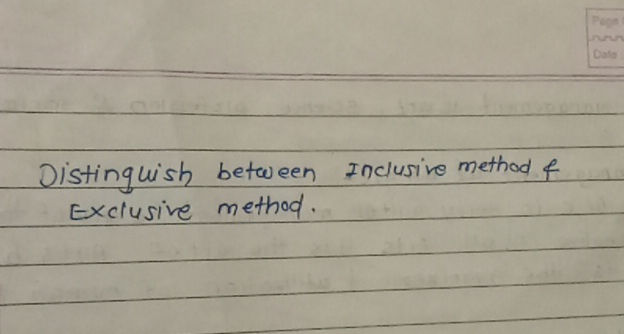 Page
Date
Distinguish between Inclusive method &
Exclusive method.